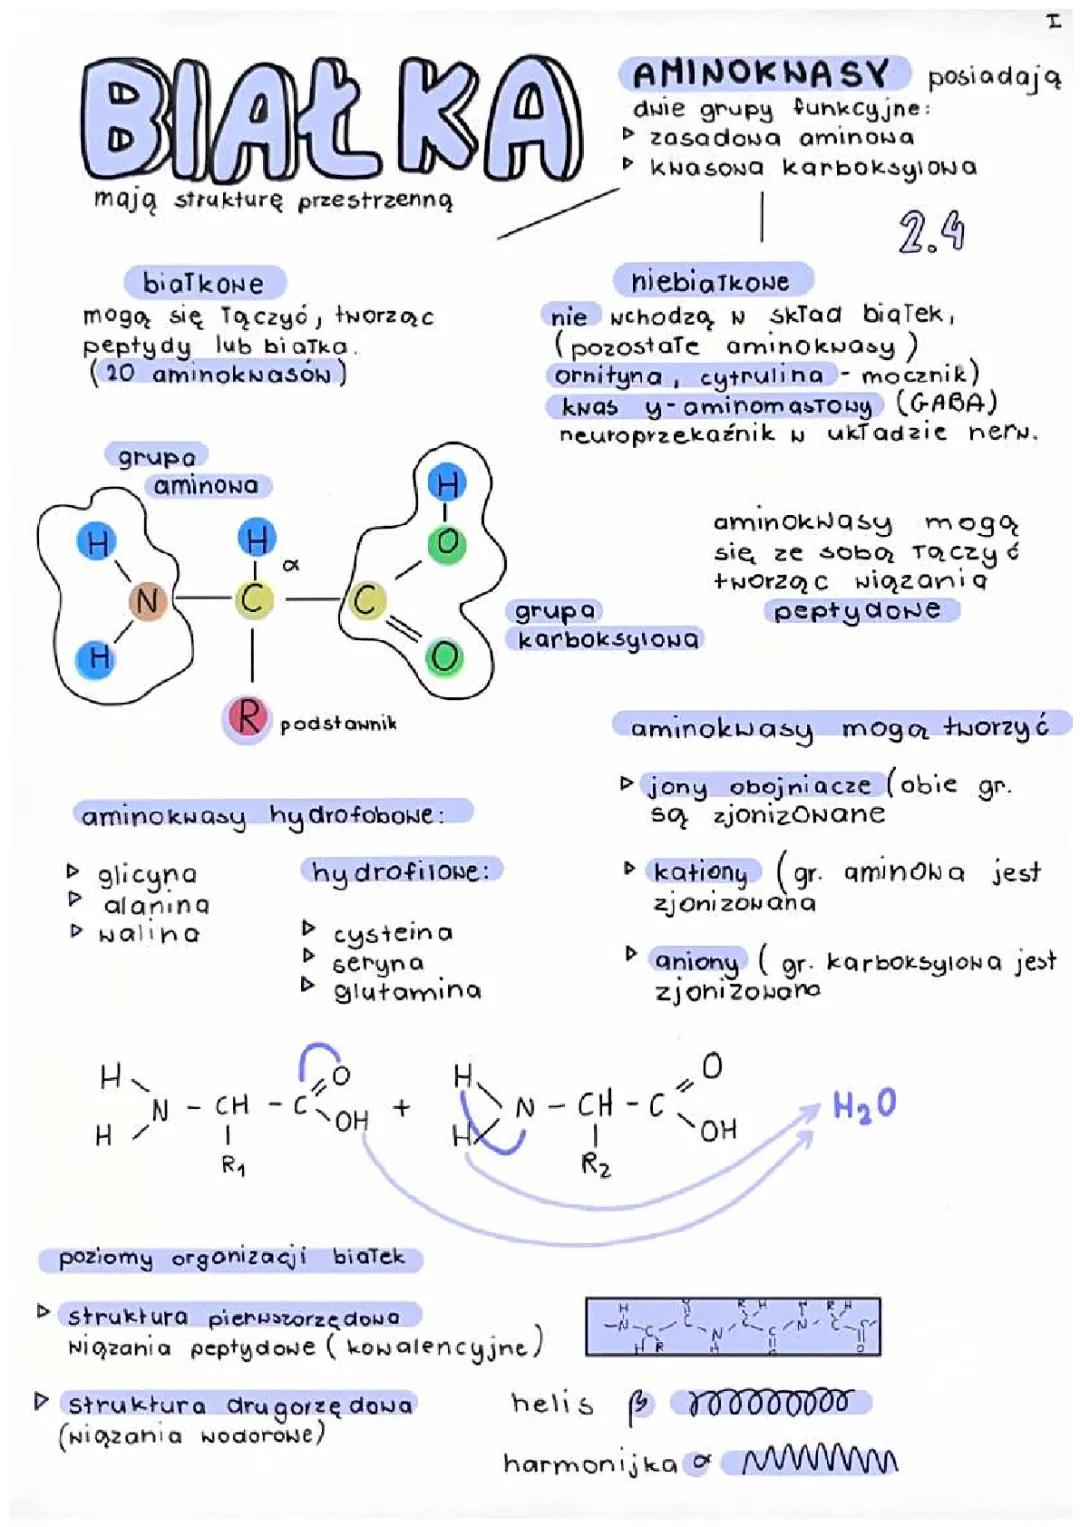 I
BIAŁKA
mają strukturę przestrzenną
AMINOKWASY posiadają
dwie grupy funkcyjne:
▷ zasadowa aminowa
▷ kwasowa karboksylowa
2.4
białkowe
mogą się łączyć, tworząc
peptydy lub białka.
(20 aminokwasów)
niebiałkowe
nie wchodzą w skład białek,
(pozostałe aminokwasy)
ornityna, cytrulina - mocznik)
kwas γ-aminomasłowy (GABA)
neuroprzekaźnik w układzie nerw.
grupa
aminowa
H
H
H
α
H
O
N
C
C
O
R podstawnik
grupa
karboksylowa
aminokwasy mogą
się ze sobą łączyć
tworząc wiązania
peptydowe
aminokwasy mogą tworzyć
▷ jony obojniacze (obie gr.
są zjonizowane
▷ kationy (gr. aminowa jest
zjonizowana
▷ aniony ( gr. karboksylowa jest
zjonizowana
aminokwasy hydrofobowe:
▷ glicyna
▷ alanina
▷ walina
hydrofilowe:
▷ cysteina
▷ seryna
▷ glutamina
H
H
N - CH - C
O
OH
R₁
+
H
H
N - CH - C
O
OH
R₂
H₂O
poziomy organizacji białek
▷ struktura pierwszorzędowa
wiązania peptydowe (kowalencyjne)
▷ struktura drugorzędowa
(wiązania wodorowe)
helis β
harmonijka α